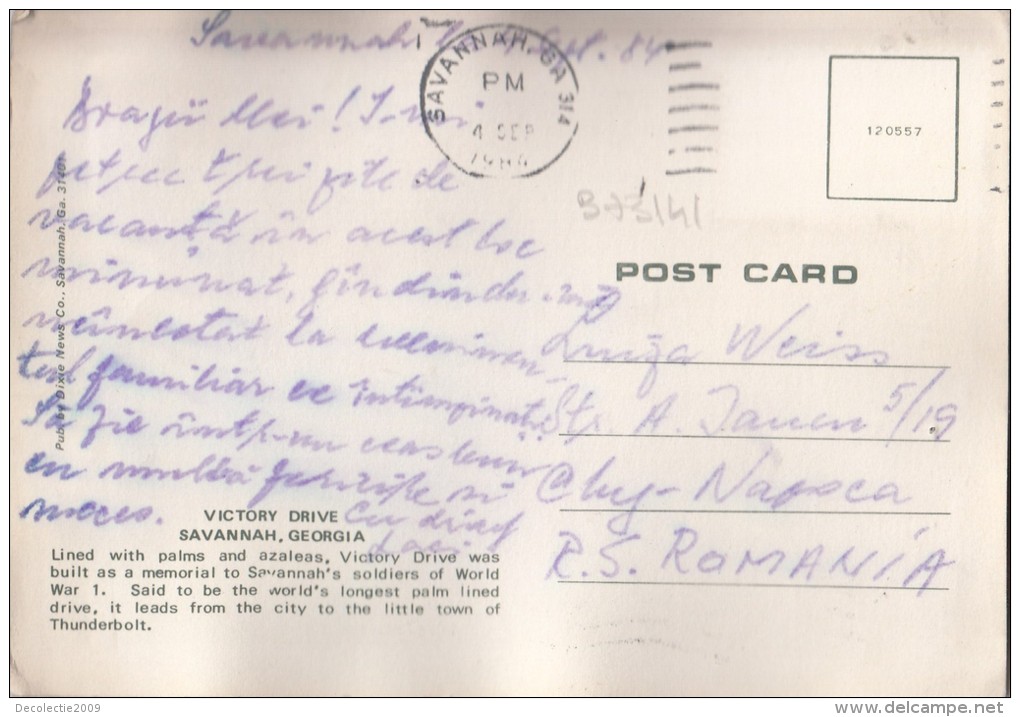 Savannah Sept. 84
SAVANNAH, GA 314
PM
4 SEP
1984
120557
Dragii Mei!
trei zile de
vacanță în acest loc
minunat, gîndindu-mă
neîncetat la evenimen-
tul familiar ce
Să fie într-un ceas bun
cu multă fericire și
succes.
Cu drag
373/41
POST CARD
Luiza Weiss
Str. A. Iancu 5/19
Cluj-Napoca
R.S. ROMANIA
Pub. by Dixie News Co., Savannah, Ga. 31401
VICTORY DRIVE
SAVANNAH, GEORGIA
Lined with palms and azaleas, Victory Drive was
built as a memorial to Savannah's soldiers of World
War 1. Said to be the world's longest palm lined
drive, it leads from the city to the little town of
Thunderbolt.
Decolectie2009